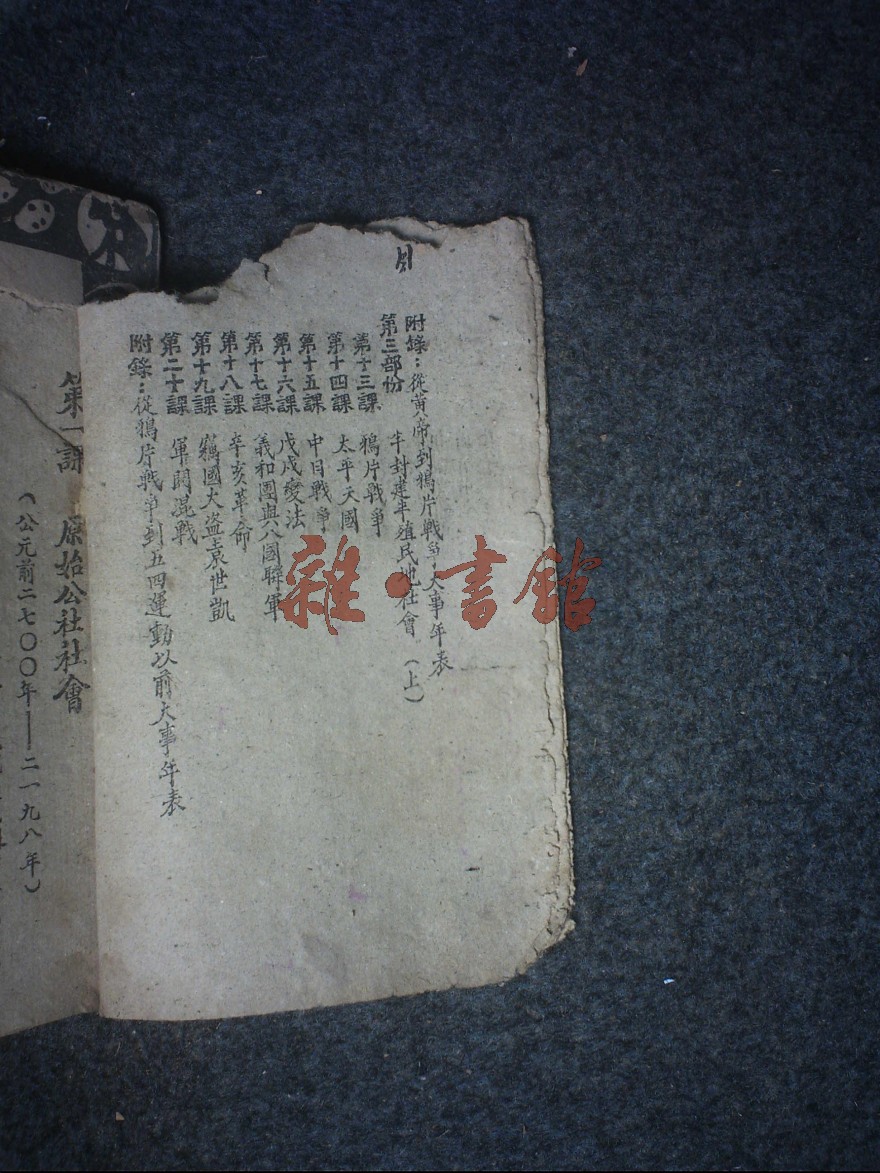 附錄：從黃帝到鴉片戰爭大事年表
第三部份 半封建半殖民地社會（上）
第十三課 鴉片戰爭
第十四課 太平天國
第十五課 中日戰爭
第十六課 戊戌變法
第十七課 義和團與八國聯軍
第十八課 辛亥革命
第十九課 竊國大盜袁世凱
第二十課 軍閥混戰
附錄：從鴉片戰爭到五四運動以前大事年表
第一課 原始公社社會
（公元前二七〇〇年——二一九八年）
雜·書館